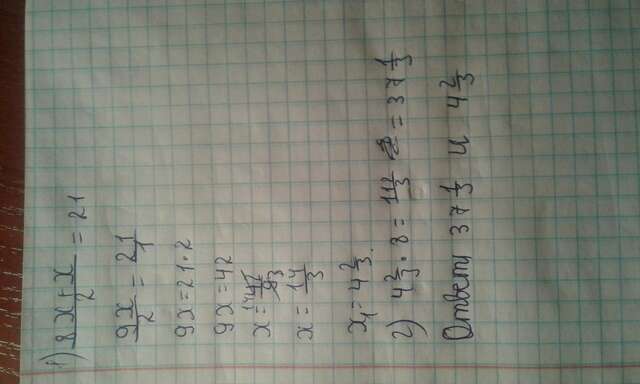 1) (8x+x)/2 = 21
9x/2 = 21/1
9x = 21·2
9x = 42
x = 42/9
x = 14/3
x₁ = 4 2/3.
2) 4 2/3 · 8 = 112/3 = 37 1/3
Ответ 37 1/3 и 4 2/3